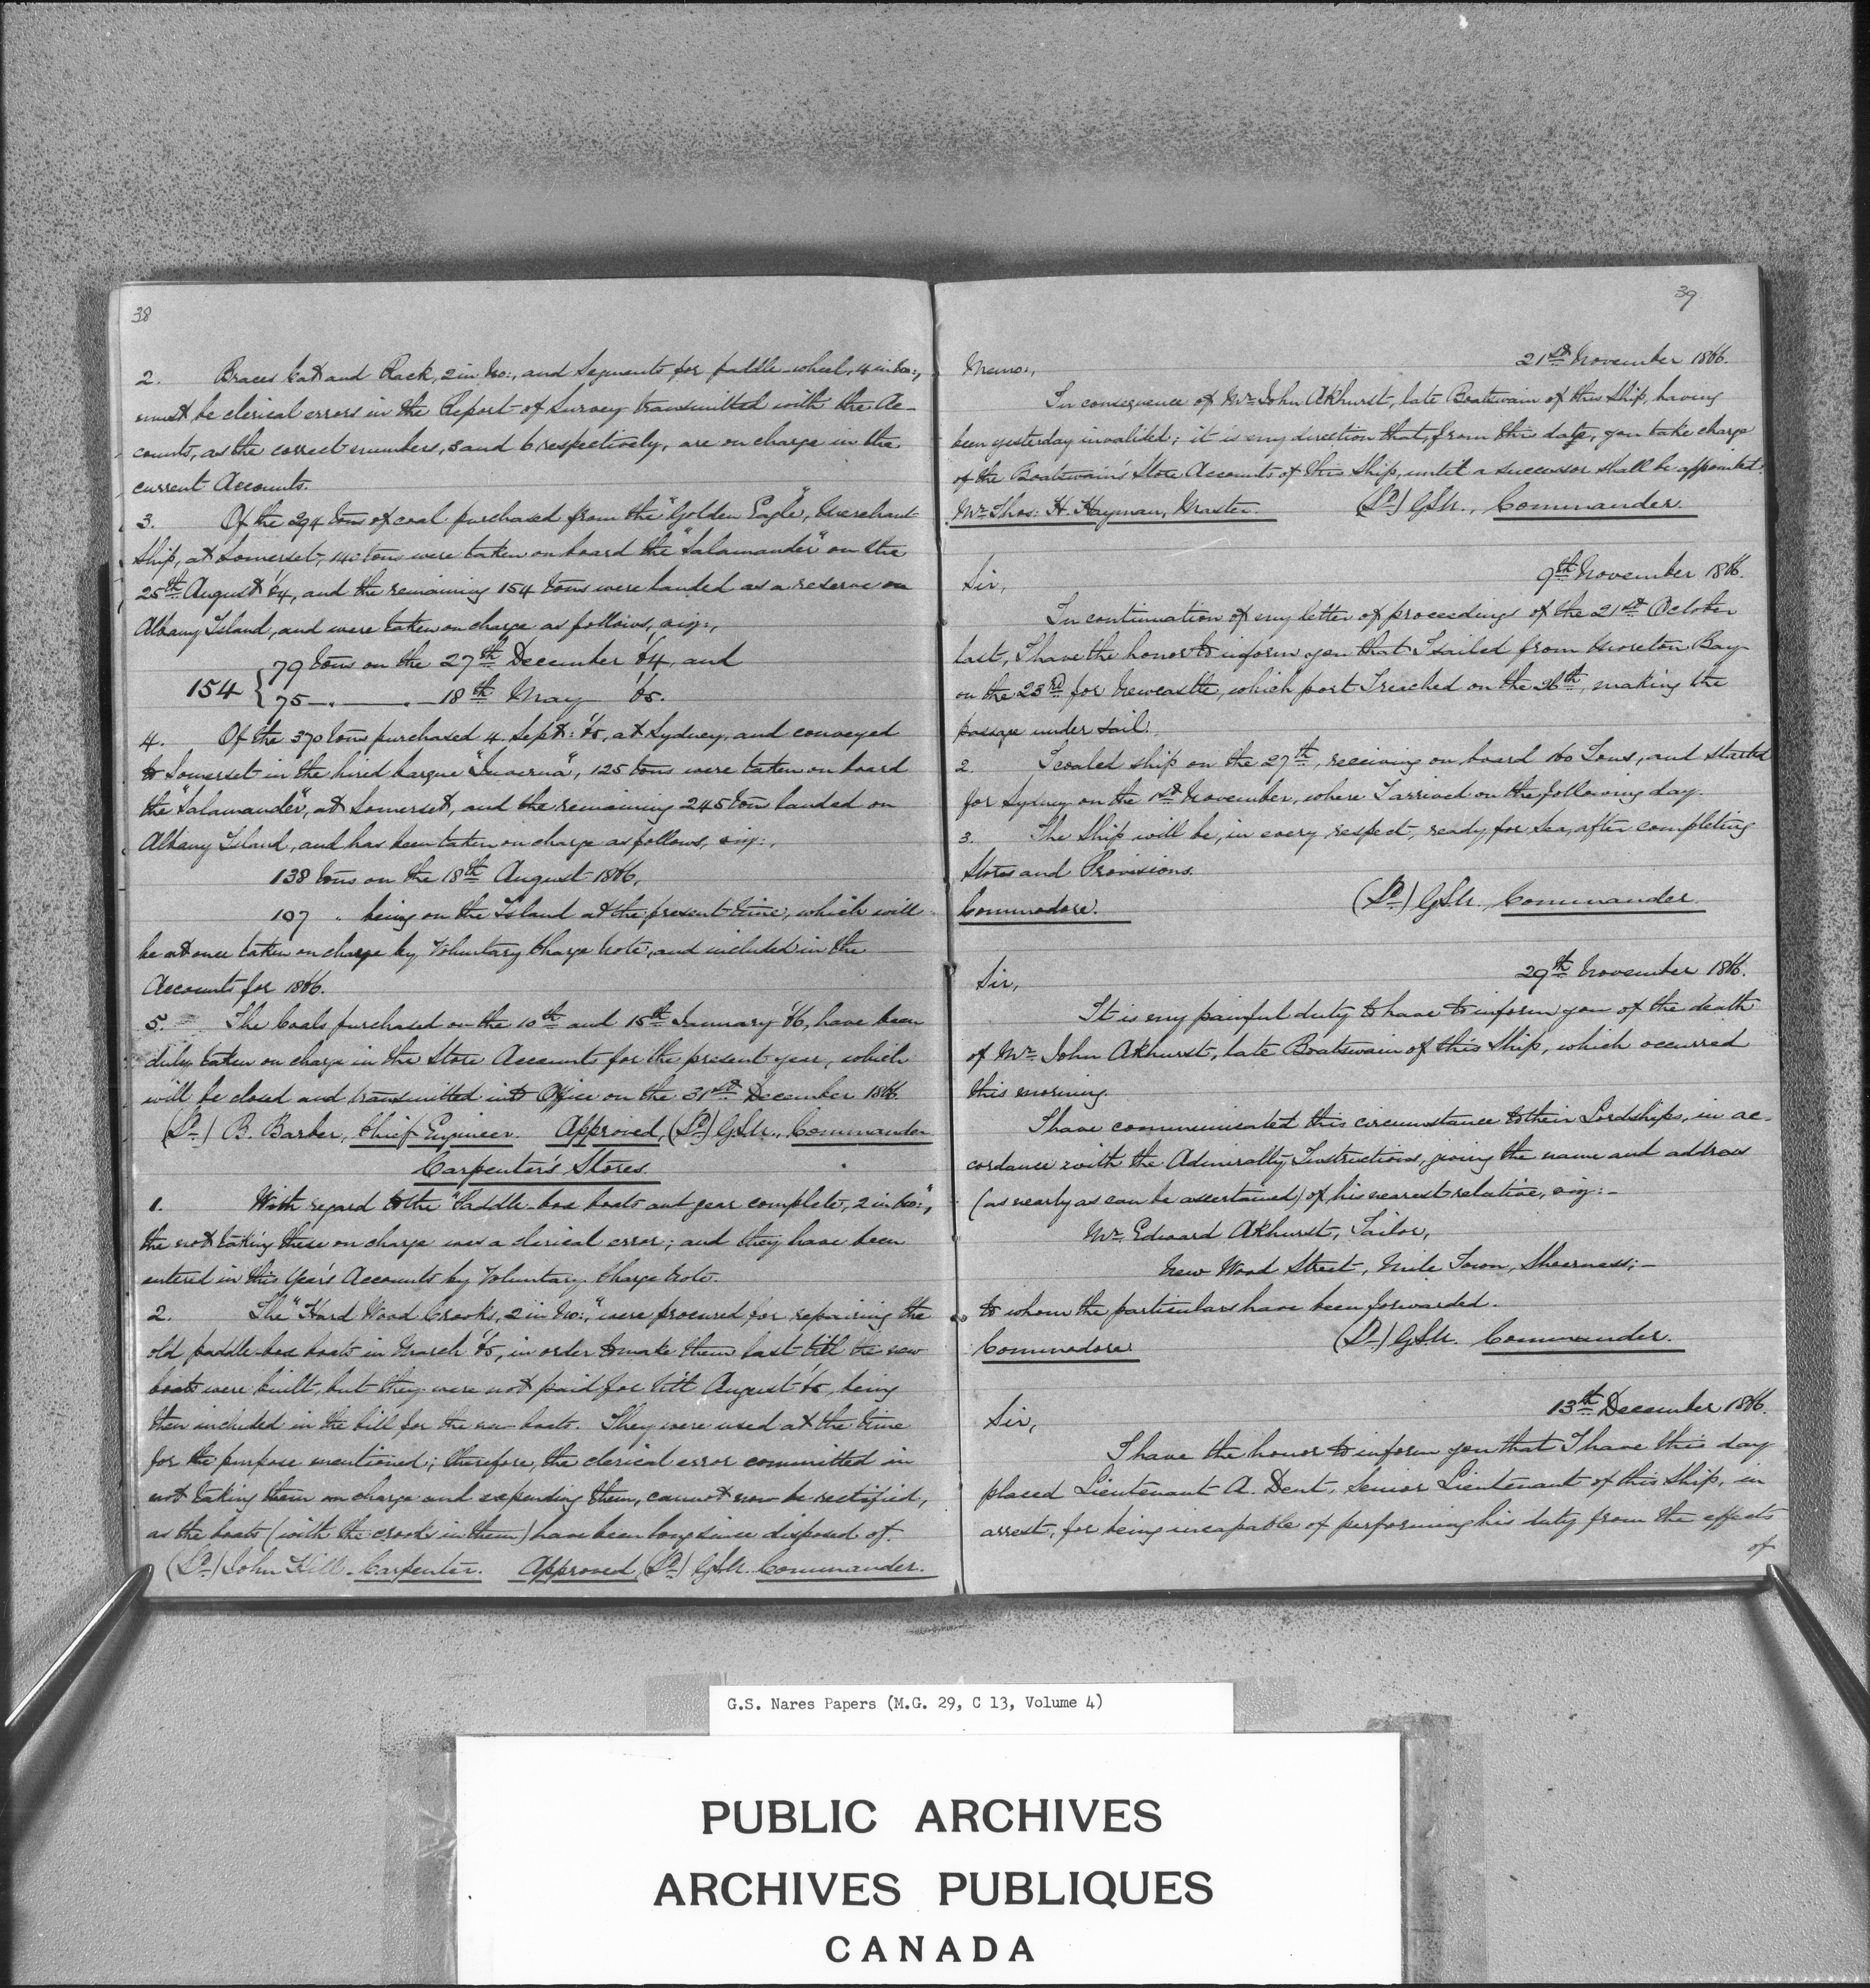 38
2. Braces Cat and Rack, 2 in No:, and Segments for paddle-wheel, 4 in No:,
must be clerical errors in the Report of Survey transmitted with the Ac-
counts, as the correct numbers, 3 and 6 respectively, are on charge in the
current Accounts.
3. Of the 294 tons of coal purchased from the "Golden Eagle", Merchant
Ship, at Somerset, 140 tons were taken on board the "Salamander" on the
25th August '64, and the remaining 154 tons were landed as a reserve on
Albany Island, and were taken on charge as follows, viz:,
154 { 79 tons on the 27th December '64, and
75 — " — " — 18th May '65.
4. Of the 370 tons purchased 4 Sept: '65, at Sydney, and conveyed
to Somerset in the hired barque "Inverna", 125 tons were taken on board
the "Salamander", at Somerset, and the remaining 245 tons landed on
Albany Island, and has been taken on charge as follows, viz:,
138 tons on the 18th August 1866,
107 " being on the Island at the present time, which will
be at once taken on charge by Voluntary Charge Note, and included in the
Accounts for 1866.
5. The Coals purchased on the 10th and 15th January '66, have been
duly taken on charge in the Store Accounts for the present year, which
will be closed and transmitted into Office on the 31st December 1866.
(Sd) B. Barber, Chief Engineer. Approved, (Sd) GSN., Commander
Carpenter's Stores
1. With regard to the "Paddle-box boats and gear complete, 2 in No:",
the not taking these on charge was a clerical error; and they have been
entered in this Year's Accounts by Voluntary Charge Note.
2. The "Hard Wood Crooks, 2 in No:," were procured for repairing the
old paddle-box boats in March '65, in order to make them last till the new
boats were built, but they were not paid for till August '65, being
then included in the bill for the new boats. They were used at the time
for the purpose mentioned; therefore, the clerical error committed in
not taking them on charge and expending them, cannot now be rectified,
as the boats (with the crooks in them) have been long since disposed of.
(Sd) John Hill - Carpenter. Approved, (Sd) GSN. Commander.
39
21st November 1866.
Memo:,
In consequence of Mr John Akhurst, late Boatswain of this Ship, having
been yesterday invalided; it is my direction that, from this date, you take charge
of the Boatswain's Store Accounts of this Ship, until a successor shall be appointed.
Mr Thos: H. Hayman, Master. (Sd) GSN., Commander.
9th November 1866.
Sir,
In continuation of my letter of proceedings of the 21st October
last, I have the honor to inform you that I sailed from Moreton Bay
on the 23rd for Newcastle, which port I reached on the 26th, making the
passage under sail.
2. I coaled ship on the 27th, receiving on board 160 Tons, and started
for Sydney on the 1st November, where I arrived on the following day.
3. The Ship will be, in every respect, ready for Sea, after completing
Stores and Provisions.
Commodore. (Sd) GSN. Commander.
29th November 1866.
Sir,
It is my painful duty to have to inform you of the death
of Mr John Akhurst, late Boatswain of this Ship, which occurred
this morning.
I have communicated this circumstance to their Lordships, in ac-
cordance with the Admiralty Instructions, giving the name and address
(as nearly as can be ascertained) of his nearest relative, viz:-
Mr Edward Akhurst, Tailor,
New Wood Street, Mile Town, Sheerness;-
to whom the particulars have been forwarded.
Commodore (Sd) GSN. Commander.
13th December 1866.
Sir,
I have the honor to inform you that I have this day
placed Lieutenant A. Dent, Senior Lieutenant of this Ship, in
arrest, for being incapable of performing his duty from the effects
of
G.S. Nares Papers (M.G. 29, C 13, Volume 4)
PUBLIC ARCHIVES
ARCHIVES PUBLIQUES
CANADA